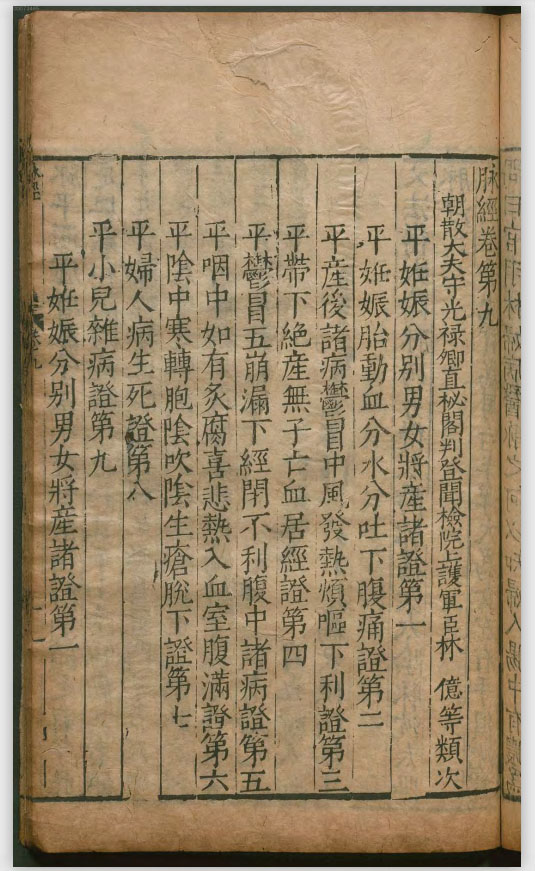 脉經卷第九
朝散大夫守光禄卿直秘閣判登聞檢院上護軍臣林 億等類次
平妊娠分别男女將産諸證第一
平妊娠胎動血分水分吐下腹痛證第二
平産後諸病鬱冒中風發熱煩嘔下利證第三
平帶下絶産無子亡血居經證第四
平鬱冒五崩漏下經閉不利腹中諸病證第五
平咽中如有炙腐喜悲熱入血室腹滿證第六
平陰中寒轉胞陰吹陰生瘡脫下證第七
平婦人病生死證第八
平小兒雜病證第九
平妊娠分别男女將産諸證第一